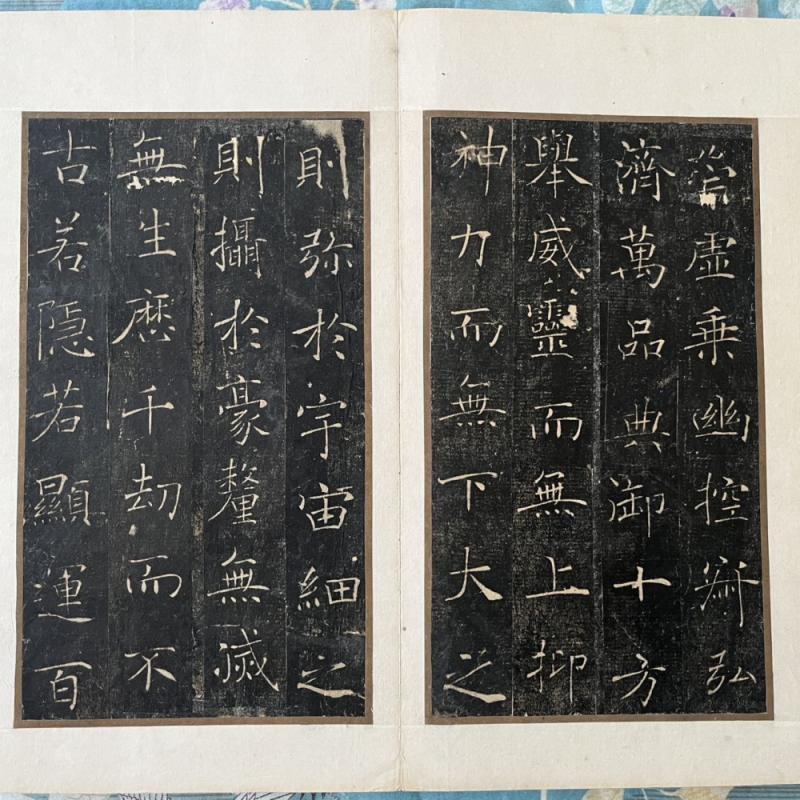 崇虛乗幽控寂弘
濟萬品典御十方
舉威靈而無上抑
神力而無下大之
則弥於宇宙細之
則攝於豪釐無滅
無生歷千劫而不
古若隱若顯運百